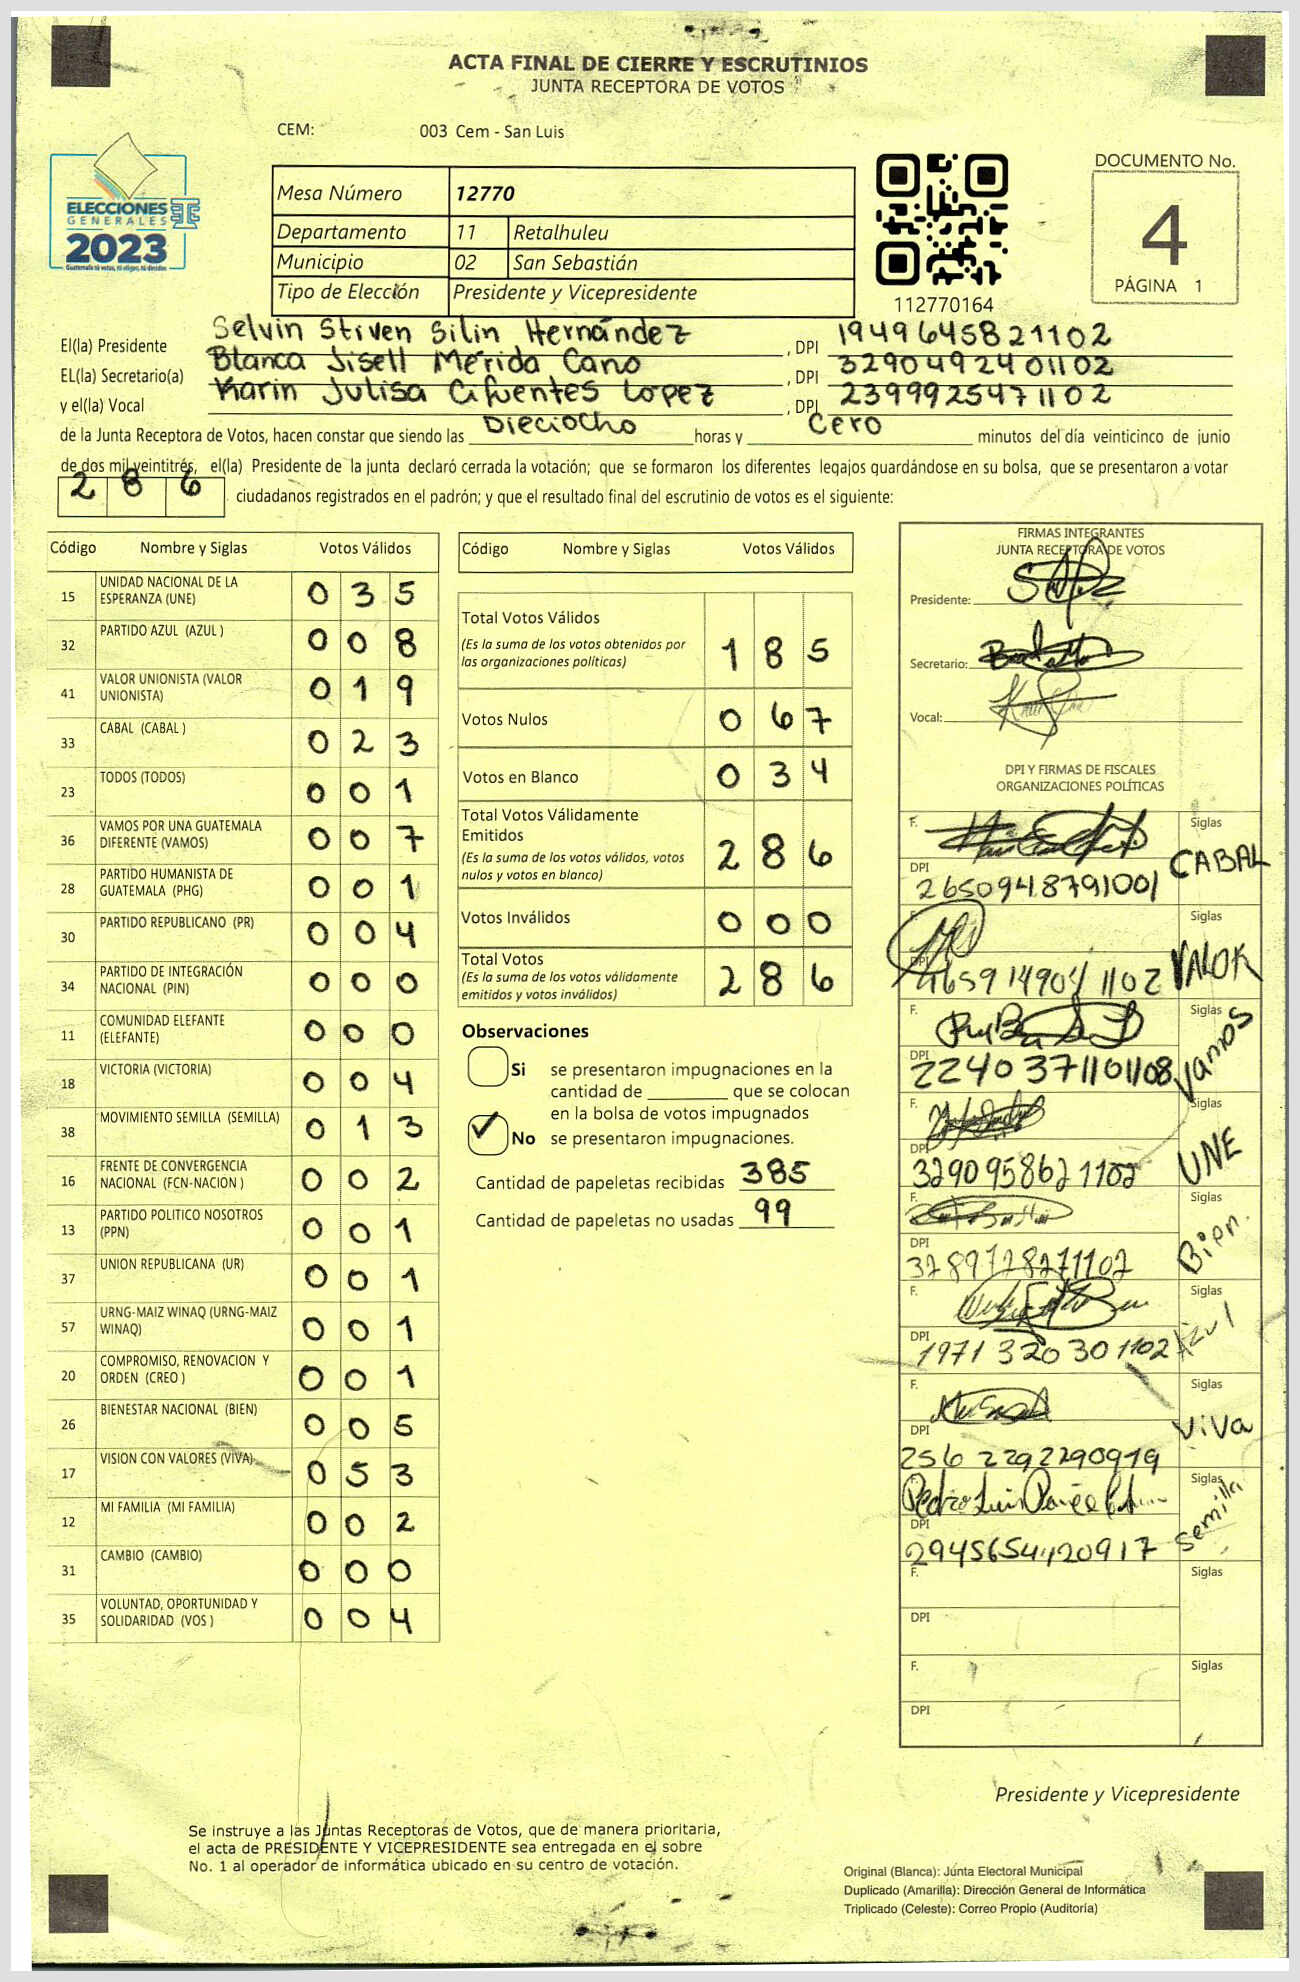 ACTA FINAL DE CIERRE Y ESCRUTINIOS
JUNTA RECEPTORA DE VOTOS
CEM: 003 Cem - San Luis
ELECCIONES
GENERALES
2023
Guatemala tú votas, tú eliges, tú decides
Mesa Número 12770
Departamento 11 Retalhuleu
Municipio 02 San Sebastián
Tipo de Elección Presidente y Vicepresidente
112770164
DOCUMENTO No.
4
PÁGINA 1
El(la) Presidente Selvin Stiven Silin Hernández, DPI 1949645821102
EL(la) Secretario(a) Blanca Jisell Mérida Cano, DPI 3290492401102
y el(la) Vocal Karin Julisa Cifuentes Lopez, DPI 2399925471102
de la Junta Receptora de Votos, hacen constar que siendo las Dieciocho horas y Cero minutos del día veinticinco de junio
de dos mil veintitrés, el(la) Presidente de la junta declaró cerrada la votación; que se formaron los diferentes legajos guardándose en su bolsa, que se presentaron a votar
286 ciudadanos registrados en el padrón; y que el resultado final del escrutinio de votos es el siguiente:
Código Nombre y Siglas Votos Válidos
15 UNIDAD NACIONAL DE LA ESPERANZA (UNE) 035
32 PARTIDO AZUL (AZUL ) 008
41 VALOR UNIONISTA (VALOR UNIONISTA) 019
33 CABAL (CABAL ) 023
23 TODOS (TODOS) 001
36 VAMOS POR UNA GUATEMALA DIFERENTE (VAMOS) 007
28 PARTIDO HUMANISTA DE GUATEMALA (PHG) 001
30 PARTIDO REPUBLICANO (PR) 004
34 PARTIDO DE INTEGRACIÓN NACIONAL (PIN) 000
11 COMUNIDAD ELEFANTE (ELEFANTE) 000
18 VICTORIA (VICTORIA) 004
38 MOVIMIENTO SEMILLA (SEMILLA) 013
16 FRENTE DE CONVERGENCIA NACIONAL (FCN-NACION ) 002
13 PARTIDO POLITICO NOSOTROS (PPN) 001
37 UNION REPUBLICANA (UR) 001
57 URNG-MAIZ WINAQ (URNG-MAIZ WINAQ) 001
20 COMPROMISO, RENOVACION Y ORDEN (CREO ) 001
26 BIENESTAR NACIONAL (BIEN) 005
17 VISION CON VALORES (VIVA) 053
12 MI FAMILIA (MI FAMILIA) 002
31 CAMBIO (CAMBIO) 000
35 VOLUNTAD, OPORTUNIDAD Y SOLIDARIDAD (VOS ) 004
Código Nombre y Siglas Votos Válidos
Total Votos Válidos
(Es la suma de los votos obtenidos por
las organizaciones políticas) 185
Votos Nulos 067
Votos en Blanco 034
Total Votos Válidamente
Emitidos
(Es la suma de los votos válidos, votos
nulos y votos en blanco) 286
Votos Inválidos 000
Total Votos
(Es la suma de los votos válidamente
emitidos y votos inválidos) 286
Observaciones
Si se presentaron impugnaciones en la
cantidad de ________ que se colocan
en la bolsa de votos impugnados
No se presentaron impugnaciones.
Cantidad de papeletas recibidas 385
Cantidad de papeletas no usadas 99
FIRMAS INTEGRANTES
JUNTA RECEPTORA DE VOTOS
Presidente:
Secretario:
Vocal:
DPI Y FIRMAS DE FISCALES
ORGANIZACIONES POLÍTICAS
F. Siglas CABAL
DPI 2650948791001
F. Siglas VALOR
DPI
F. Siglas Vamos
DPI 2240371101108
F. Siglas UNE
DPI 3290958621102
F. Siglas Bien.
DPI 3289728271102
F. Siglas Azul
DPI 1971320301102
F. Siglas ViVa
DPI 2562292290919
F. Siglas Semilla
DPI
F. Siglas
DPI
F. Siglas
DPI
Presidente y Vicepresidente
Se instruye a las Juntas Receptoras de Votos, que de manera prioritaria,
el acta de PRESIDENTE Y VICEPRESIDENTE sea entregada en el sobre
No. 1 al operador de informática ubicado en su centro de votación.
Original (Blanca): Junta Electoral Municipal
Duplicado (Amarilla): Dirección General de Informática
Triplicado (Celeste): Correo Propio (Auditoría)